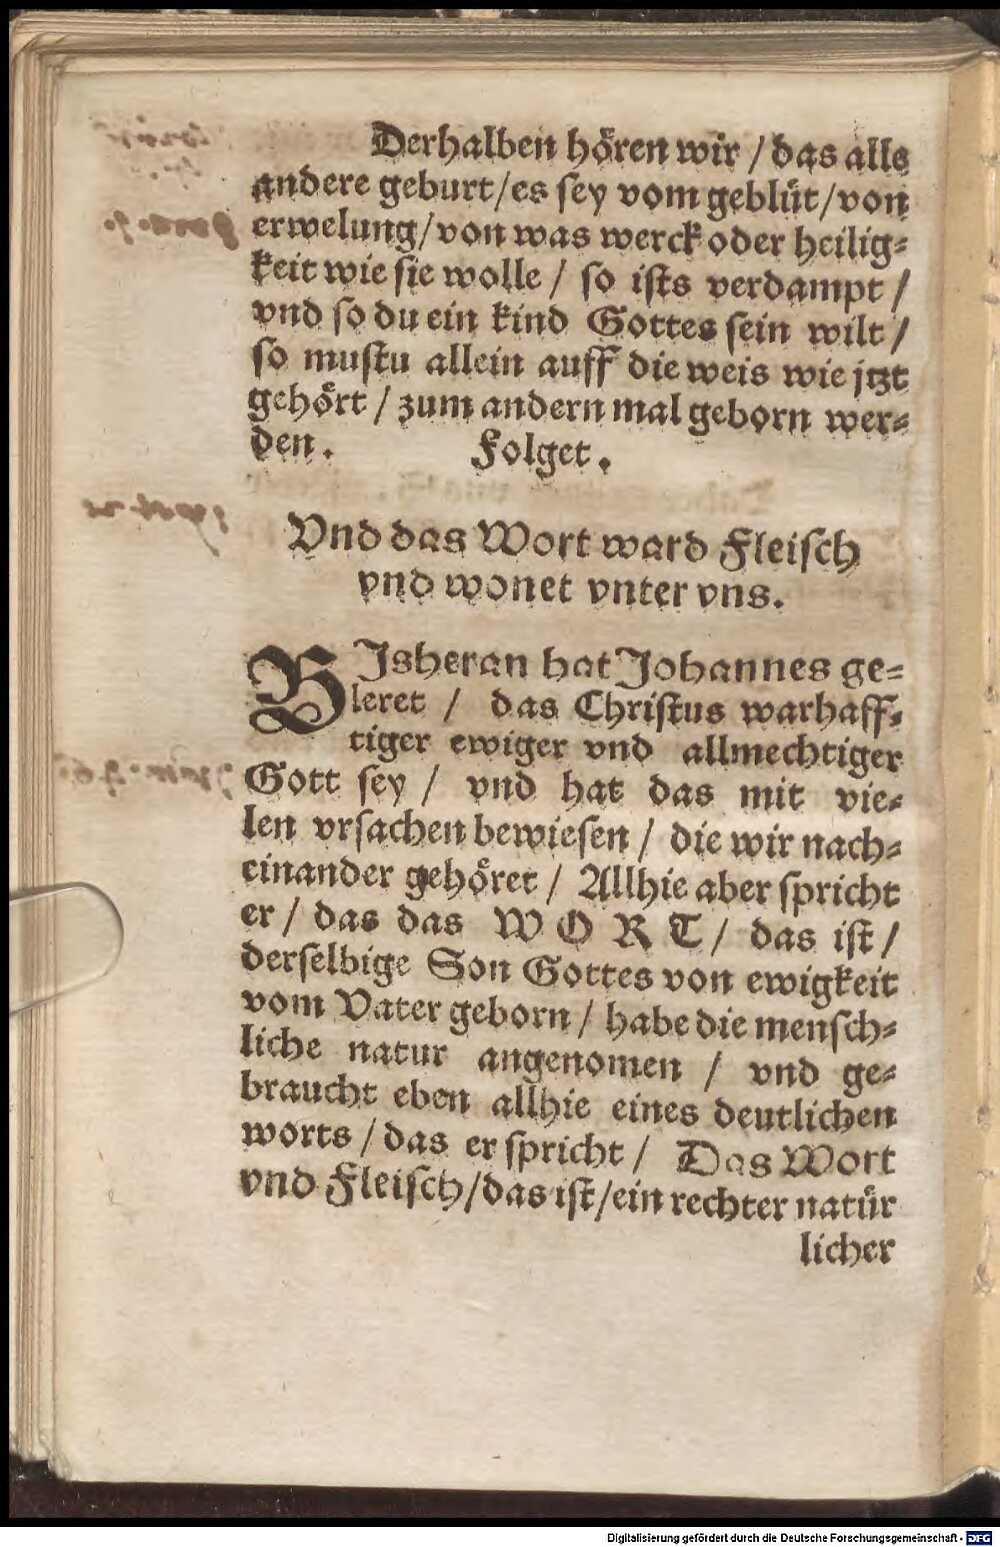 Derhalben hören wir / das alle
andere geburt / es sey vom geblüt / von
erwelung / von was werck oder heilig=
keit wie sie wolle / so ists verdampt /
vnd so du ein kind Gottes sein wilt /
so mustu allein auff die weis wie jtzt
gehört / zum andern mal geborn wer=
den. Folget.
Vnd das Wort ward Fleisch
vnd wonet vnter vns.
BJsheran hat Johannes ge=
leret / das Christus warhaff=
tiger ewiger vnd allmechtiger
Gott sey / vnd hat das mit vie=
len vrsachen bewiesen / die wir nach=
einander gehöret / Allhie aber spricht
er / das das WORT / das ist /
derselbige Son Gottes von ewigkeit
vom Vater geborn / habe die mensch=
liche natur angenomen / vnd ge=
braucht eben allhie eines deutlichen
worts / das er spricht / Das Wort
vnd Fleisch / das ist / ein rechter natür
licher
Digitalisierung gefördert durch die Deutsche Forschungsgemeinschaft - DFG